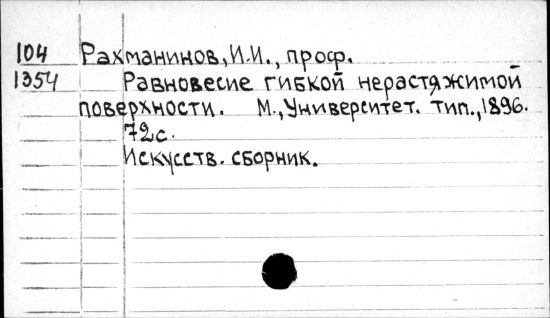 104 Рахманинов, И.И., проф.
1354 Равновесие гибкой нерастяжимой
поверхности. М., Университет. тип., 1896.
72с.
Искусств. сборник.